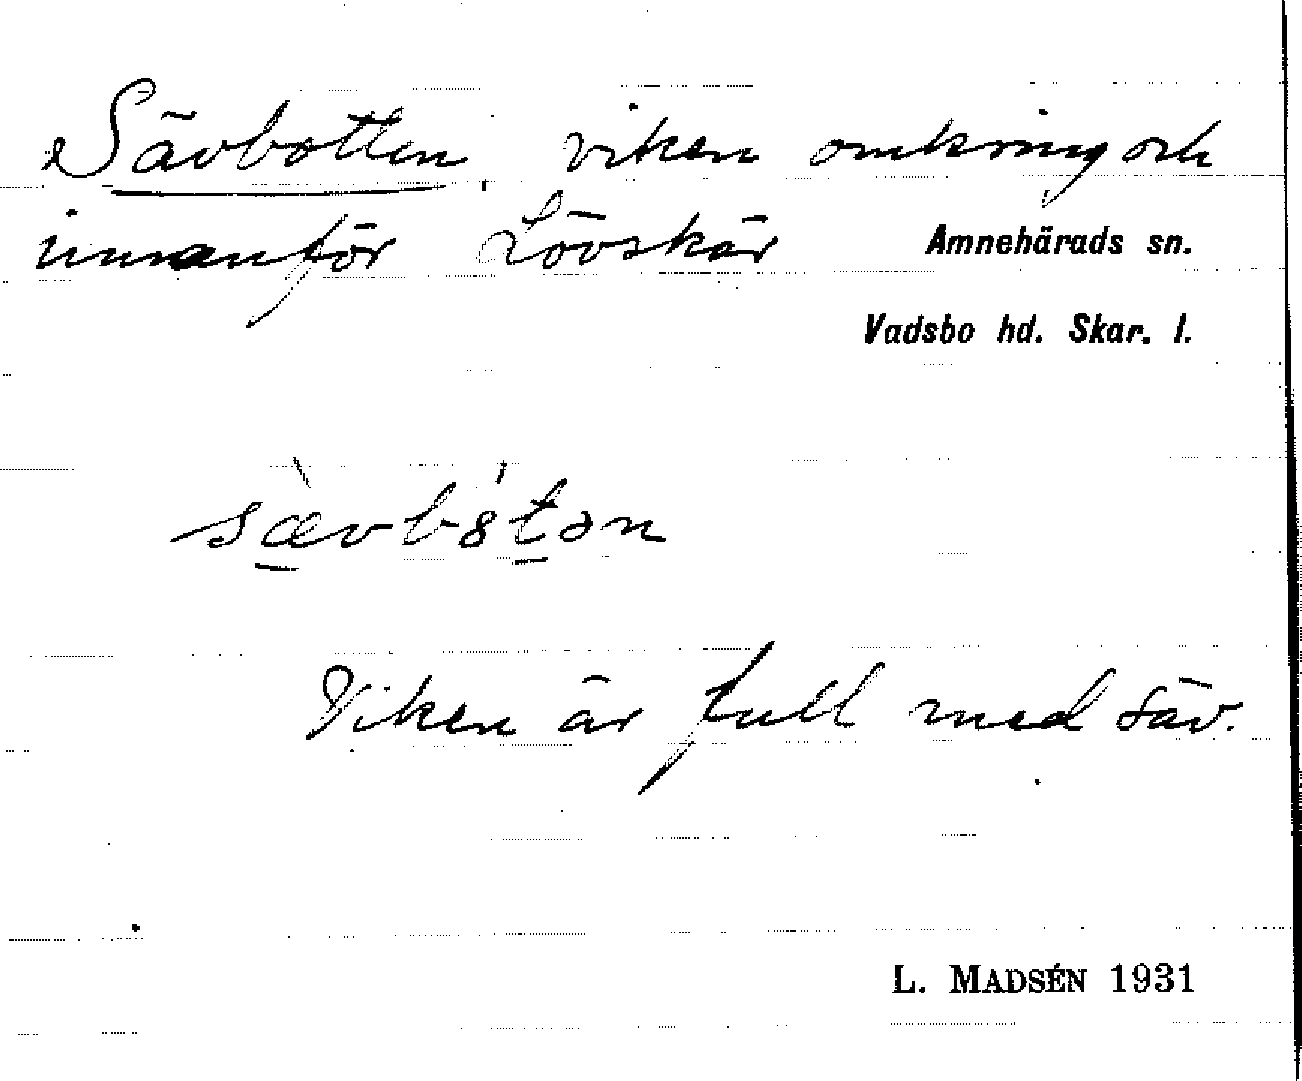 Sävbotten, viken omkring och
innanför Lövskär
Amnehärads sn.
Vadsbo hd. Skar. l.
sæ̠̀vbótən
Viken är full med säv.
L. MADSÉN 1931